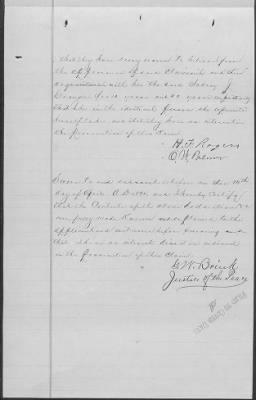 that they have every reason to believe from
the appearance of said Claimant and their
acquaintance with her the said
years and years respectively
that she is the identical person she represents
herself to be and that they have no interest in
the prosecution of this Claim.
H. F. Rogers
O. W. Palmer
Sworn to and subscribed before me this 14th
day of April A.D. 18 and I hereby Certify
that the Contents of the above declaration &c
were fully made Known and explained to the
applicant and witnesses before swearing and
that I have no interest direct or indirect
in the prosecution of this Claim.
G. W. Brink
Justice of the Peace